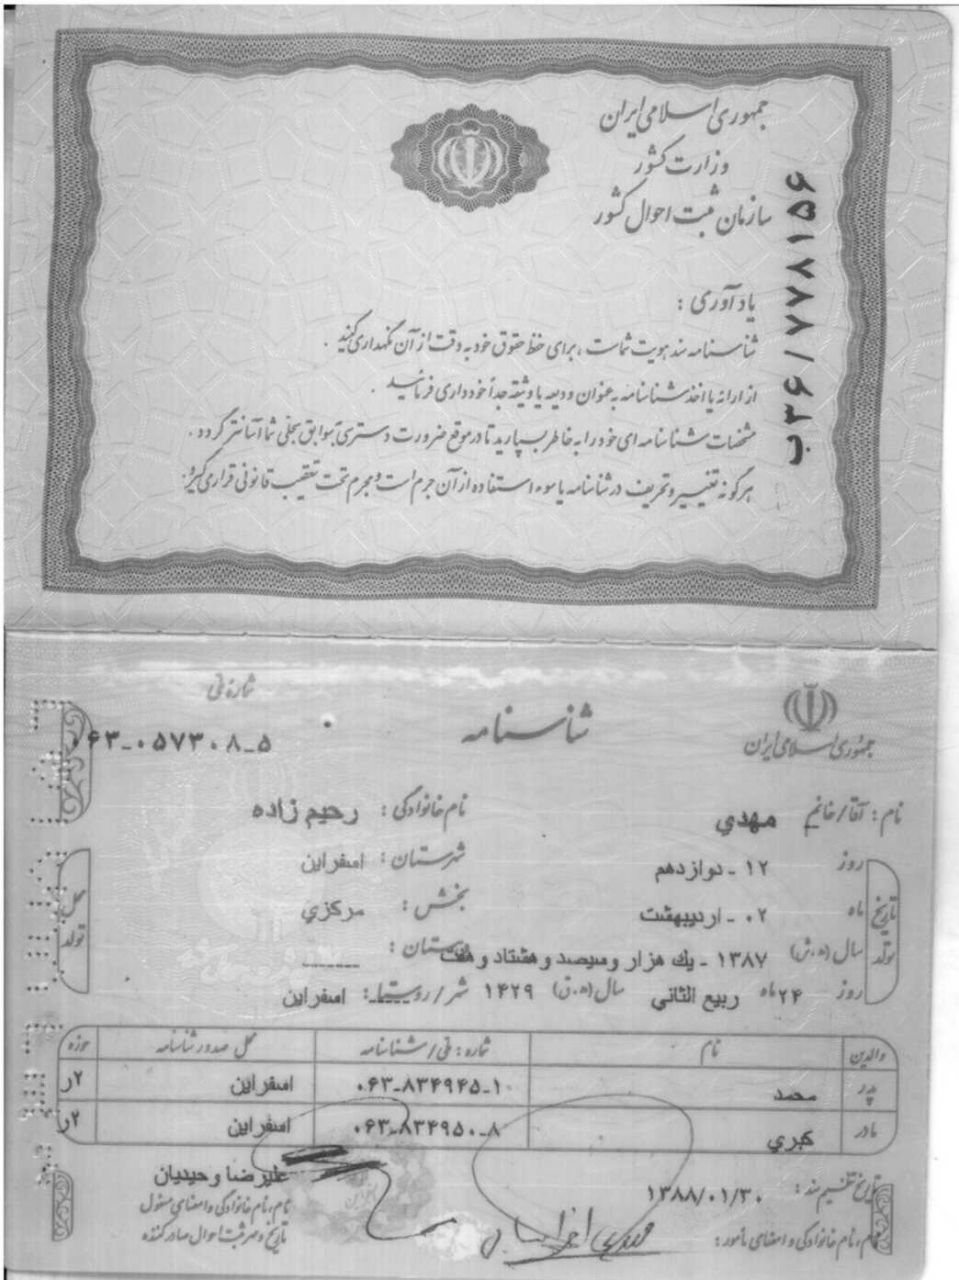 جمهوری اسلامی ایران
وزارت کشور
سازمان ثبت احوال کشور
ب۳۶/۷۷۸۱۵۶
یادآوری :
شناسنامه سند هویت شماست ، برای حفظ حقوق خود به دقت از آن نگهداری کنید .
از ارائه یا اخذ شناسنامه به عنوان ودیعه یا وثیقه جداً خودداری فرمائید .
مشخصات شناسنامه ای خود را به خاطر بسپارید تا در موقع ضرورت دسترسی به سوابق سجلی شما آسانتر گردد .
هرگونه تغییر و تحریف در شناسنامه یا سوء استفاده از آن جرم است و مجرم تحت تعقیب قانونی قرار می گیرد .
جمهوری اسلامی ایران
شناسنامه
شماره ملی
۰۶۳-۰۵۷۳۰۸-۵
نام : آقا/خانم مهدي نام خانوادگی : رحیم زاده
تاریخ تولد
روز ۱۲ - دوازدهم شهرستان : اسفراین
ماه ۰۲ - اردیبهشت بخش : مرکزي
سال (ه.ش) ۱۳۸۷ - یك هزار وسیصد و هشتاد و هفت دهستان : -------
روز ۲۴ ماه ربیع الثاني سال (ه.ق) ۱۴۲۹ شهر/روستا: اسفراین
محل تولد
والدین نام شماره : ملی/شناسنامه محل صدور شناسنامه حوزه
پدر محمد ۰۶۳-۸۳۴۹۴۵-۱ اسفراین ۲ر
مادر کبري ۰۶۳-۸۳۴۹۵۰-۸ اسفراین ۲ر
تاریخ تنظیم سند : ۱۳۸۸/۰۱/۳۰ علیرضا وحیدیان
نام، نام خانوادگی و امضای مأمور : نام، نام خانوادگی و امضای مسئول
تاریخ و مهر ثبت احوال صادر کننده